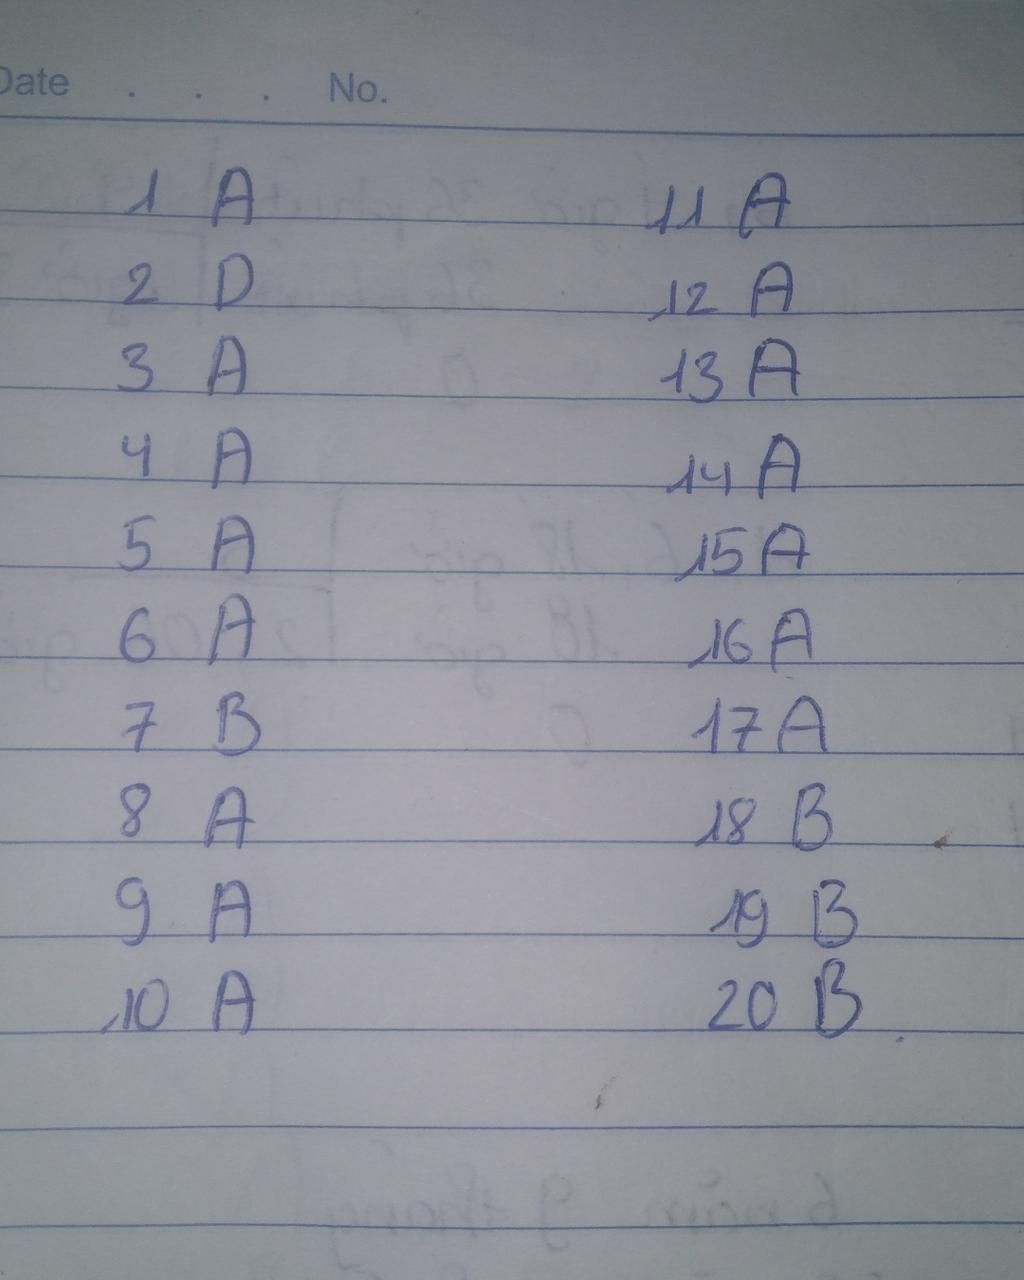 Date . . . No.
1 A
2 D
3 A
4 A
5 A
6 A
7 B
8 A
9 A
10 A
11 A
12 A
13 A
14 A
15 A
16 A
17 A
18 B
19 B
20 B